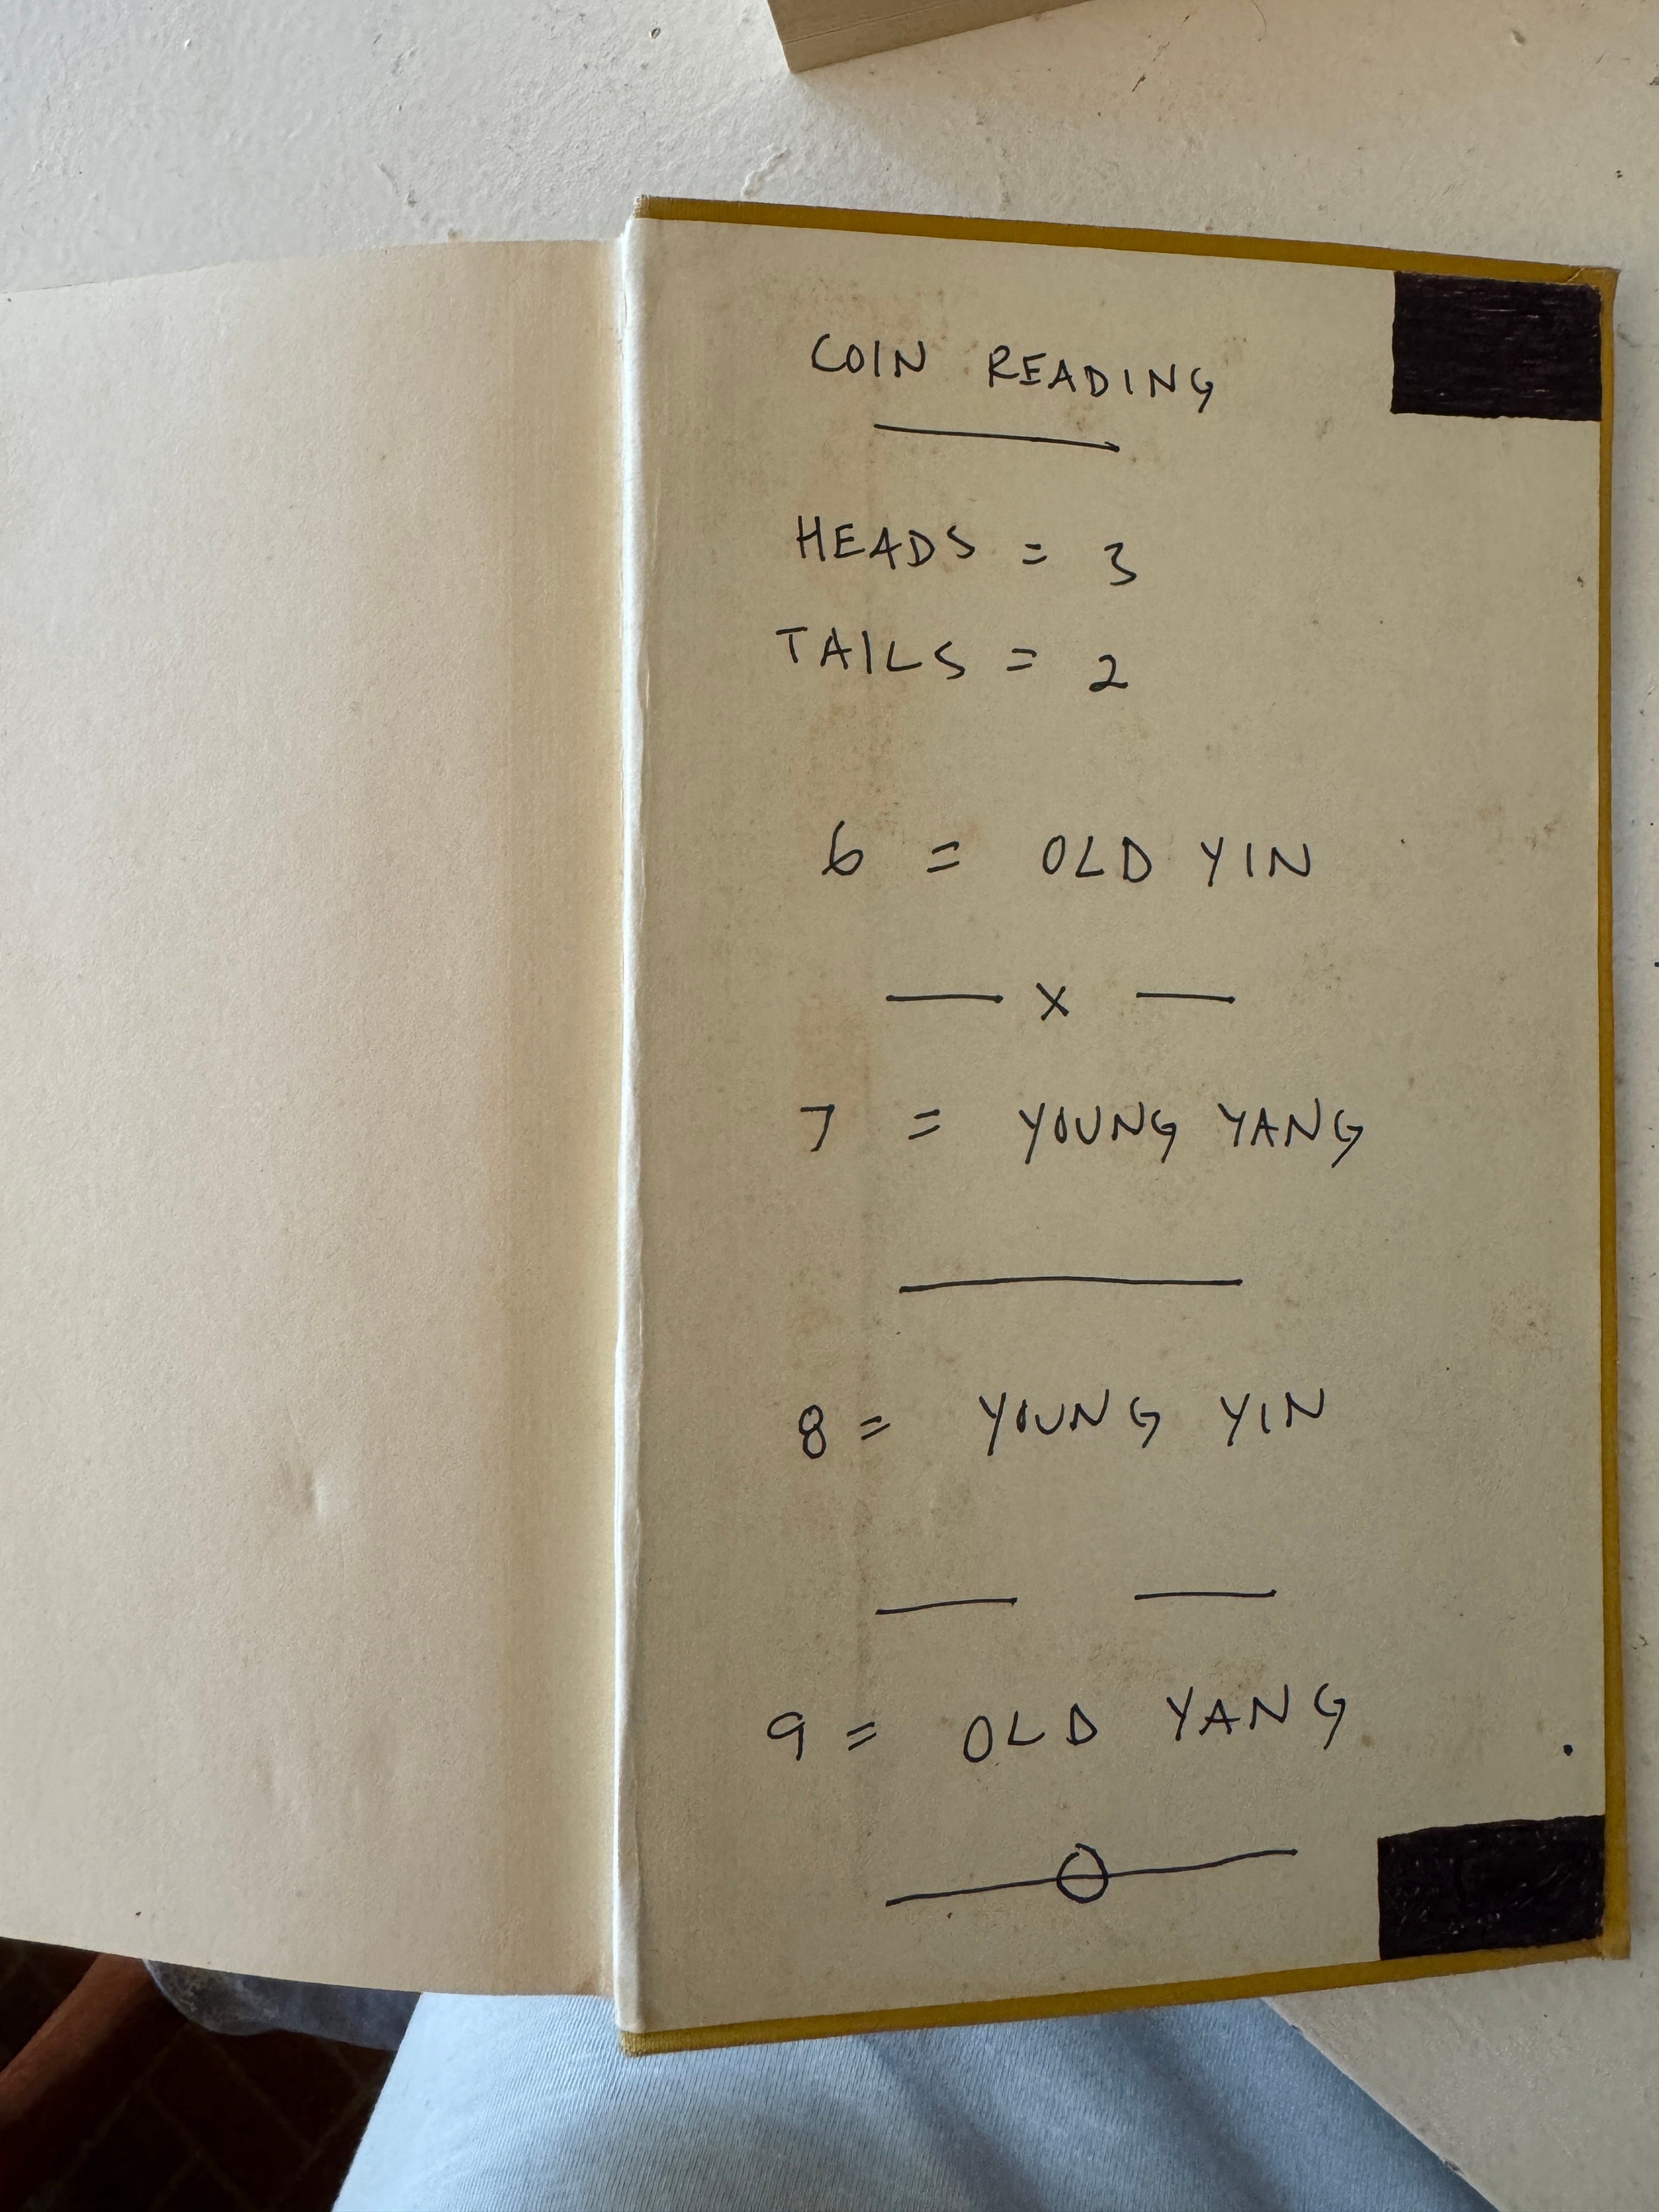 COIN READING
HEADS = 3
TAILS = 2
6 = OLD YIN
— x —
7 = YOUNG YANG
8 = YOUNG YIN
9 = OLD YANG